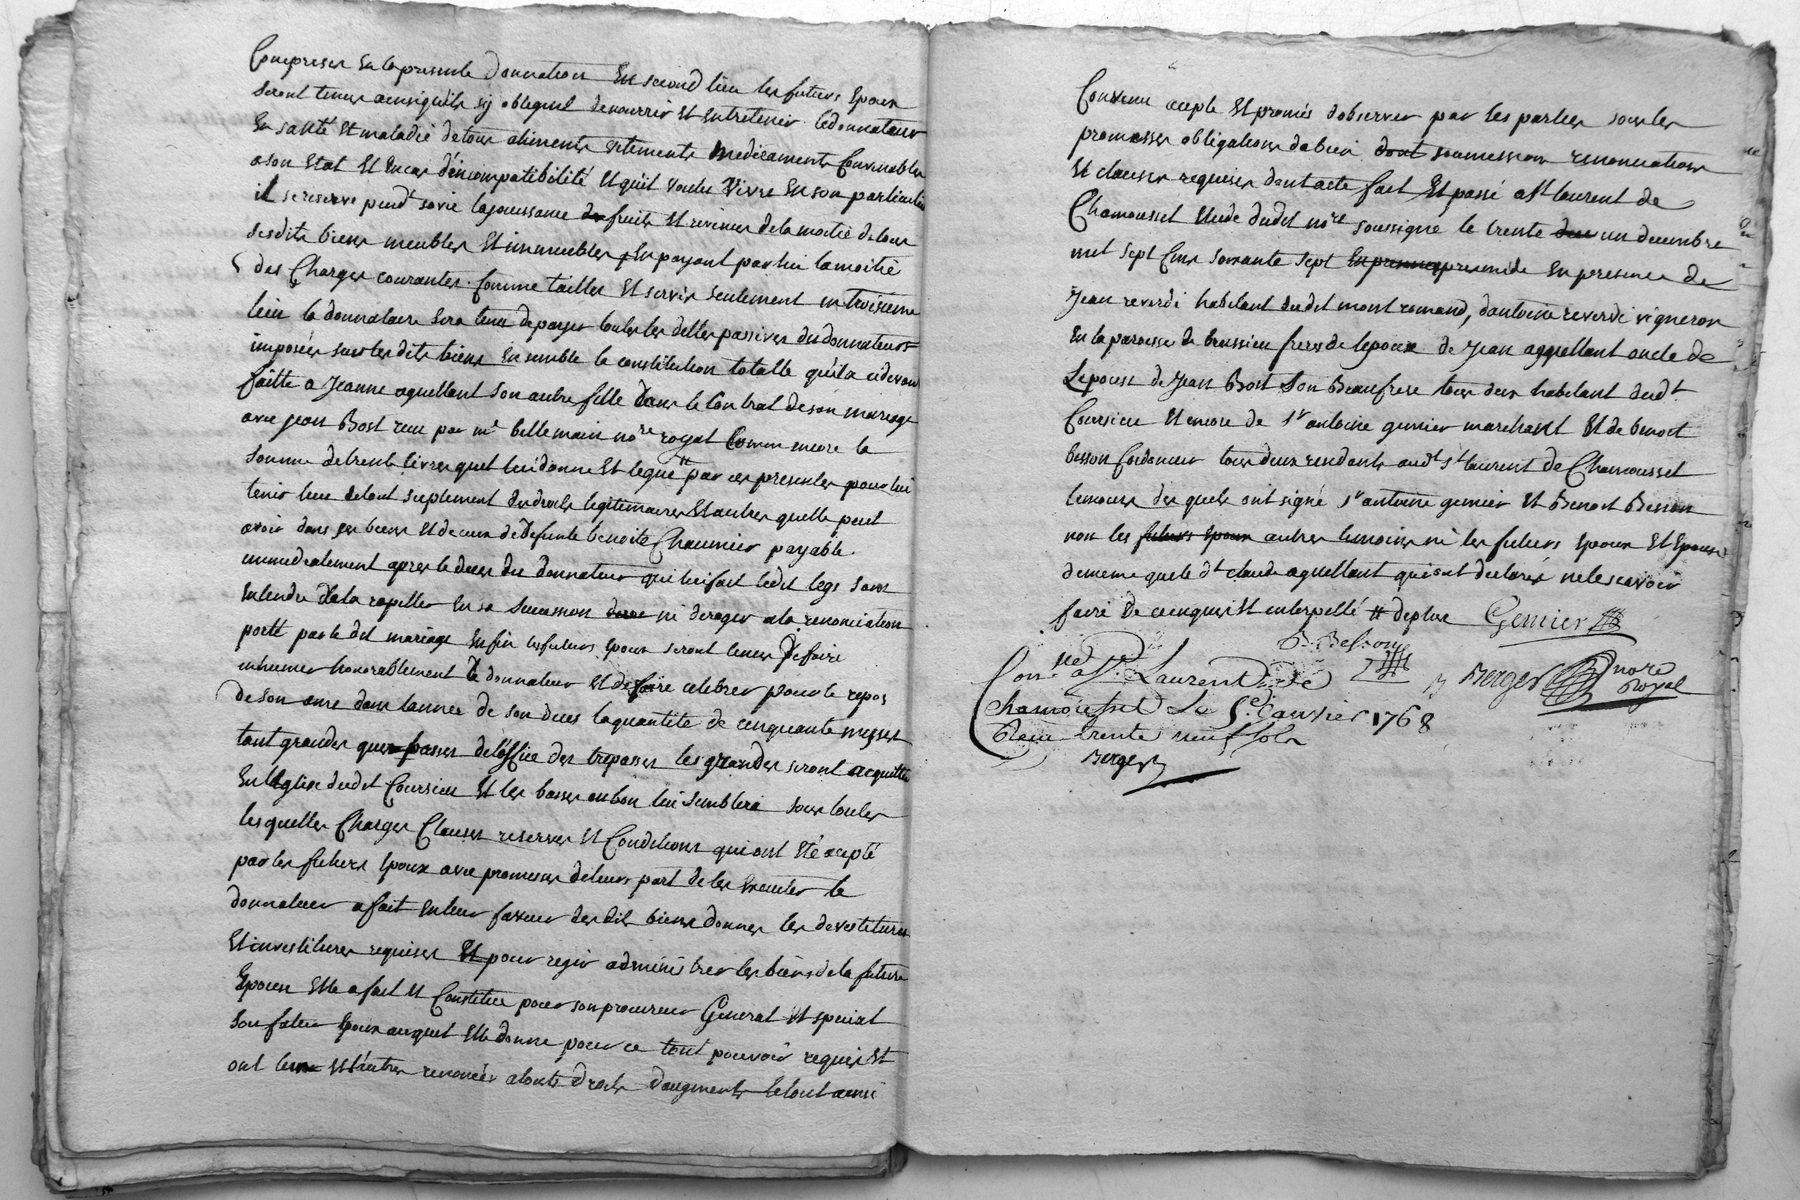 Comprises en la presente donnation En second lieu les futurs Epoux
seront tenus ainsiquils sy obligent denourrir Et Entretenir ledonnateur
En santé Et maladie detous aliments vetements medicaments Convenables
ason Etat Et En cas d'incompatibilité Et quil voulu Vivre En son particulier
il se reserve pendt savie lajouissance des fruits Et revenus dela moitié detous
sesdits biens meubles Et immeubles En payant par lui lamoitié
des Charges courantes Comme tailles Et servis seulement en troisieme
lieu le donnataire sera tenu depayer toutes les dettes passives dudonnateur
imposées sur les dits biens Ensemble la constitution totalle quil a cidevant
faitte a Jeanne aguellant son autre fille dans le Contrat deson mariage
avec jean Bost recu par me bellemain nore royal Comm encore la
somme detrente livres quel lui donne Et legue par ces presentes pour lui
tenir lieu detout suplement desdroits legitimaires Et autres quelle peut
avoir dans ses biens Et deceux dedefunte benoite Chaumier payable
immediatement apres le deces du donnateur qui lui fait ledit legs sans
entendre dela rapeller En sa Succession ni deroger ala renonciation
porté par le dit mariage Enfin lesfuturs Epoux seront tenus Defaire
inhumer honorablement le donnateur Et defaire celebrer pour le repos
de son ame dans lannee de son deces laquantité de cinquante messes
tant grandes que basses del'office des trepassés les grandes seront acquittés
En l'Eglise dudit Coursieu Et les basses oubon lui semblera sous toutes
lesquelles Charges Clauses reserves Et Conditions qui ont Eté acepté
par les futurs Epoux avec promesses deleurs part de les Executer le
donnateur afait Enleur faveur desdit biens donnes les devestitures
Et investitures requises Et pour regir administrer les biens de la future
Epouse Elle a fait Et Constitué pour son procureur General Et special
son futur Epoux auquel Elle donne pour ce tout pouvoir requis Et
ont lun Et l'autres renoncés atouts droits d'augments letout ainsi
Convenu acepté Et promis dobserver par les parties sous les
promesses obligations debien dont soumission renonciations
Et clauses requises dont acte fait Et passé a St laurent de
Chamousset Etude dudit nore soussigné le trente un decembre
mil sept Cens soixante sept En presence de
Jean reverdi habitant dudit mont romand, dantoine reverdi vigneron
En la paroisse de brussieu freres de lepoux de Jean aguellant oncle de
Lepouse de Jean Bost Son Beaufrere tous deux habitant dudt
Coursieu Et encore de Sr antoine gemier marchant Et de benoit
besson Cordonnier tous deux residents audt St laurent de Chamousset
temoins des quels ont signé Sr antoine gemier Et Benoit Besson
non les futurs Epoux autres temoins ni les futurs Epoux Et Epouse
dememe quele dt claude aguellant quiont declarés nelescavoir
faire De cenquis Et interpellé # deplus Gemier
B. Besson
Berger nore
Royal
Conlle a St. Laurent De
Chamousset Le 5e. Janvier 1768
Recu trente neuf sols
Berger